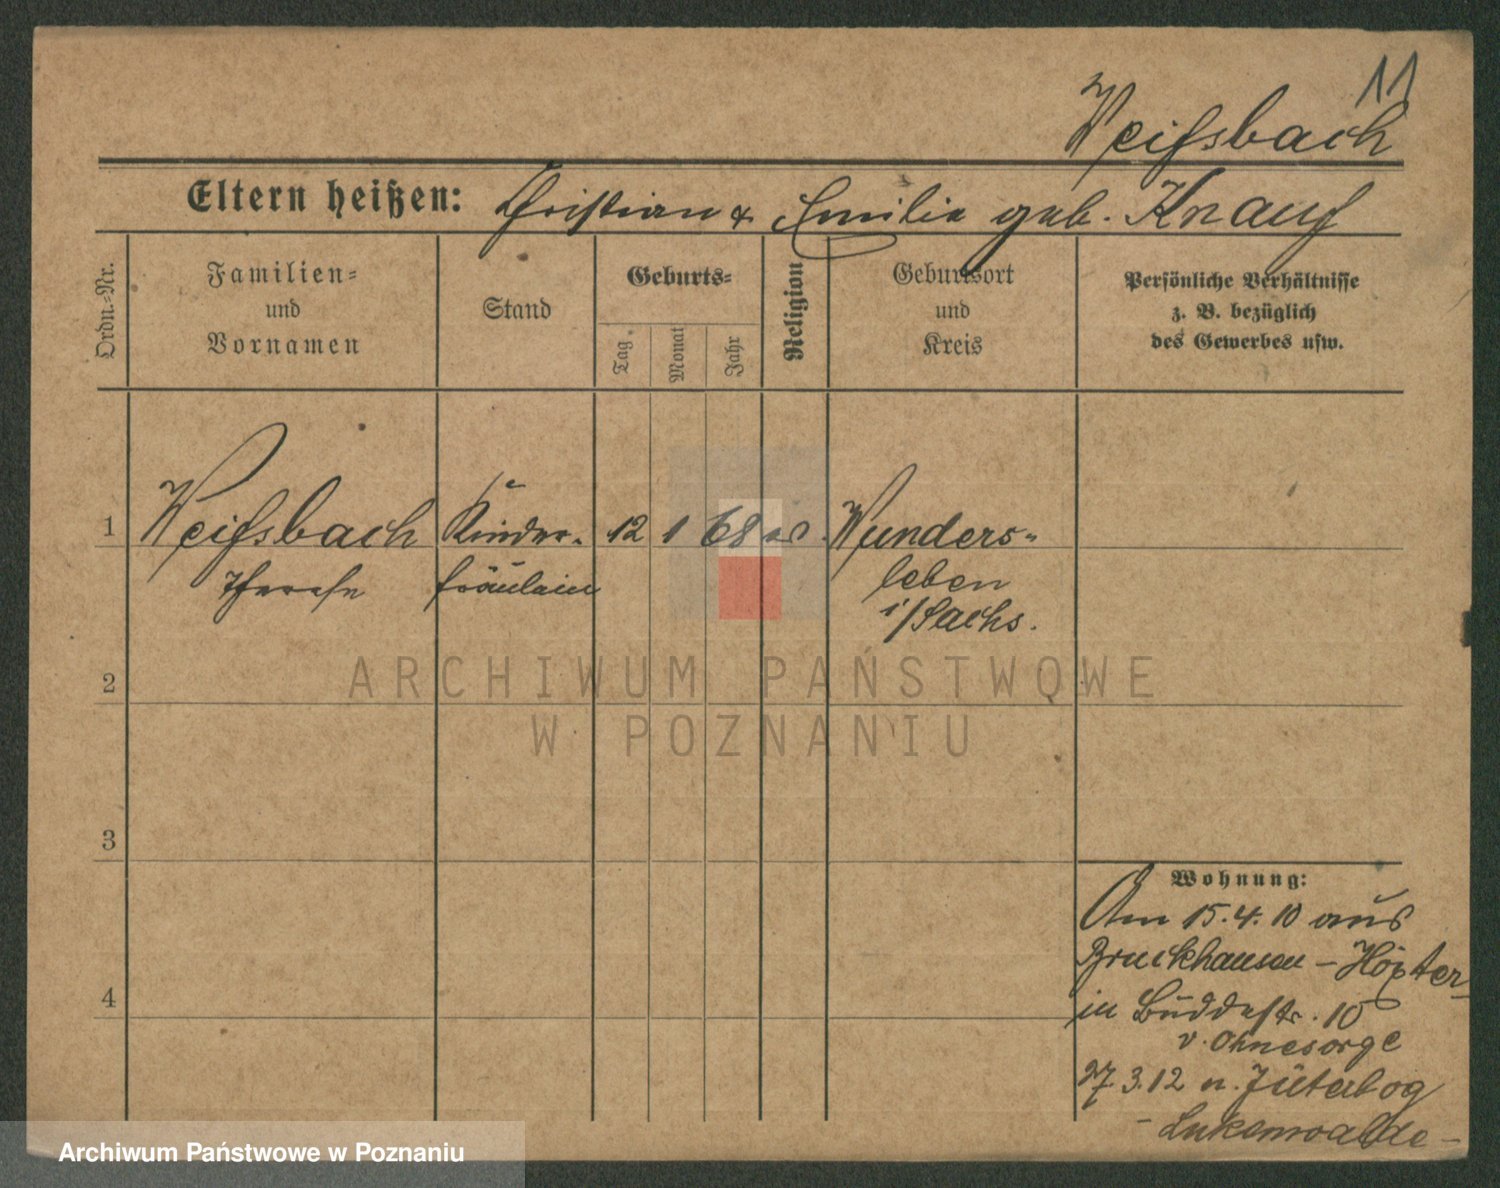 11
Weißsbach
Eltern heißen: Christian & Emilie geb. Knauf
Ordn.=Nr.
Familien=
und
Vornamen
Stand
Geburts=
Tag
Monat
Jahr
Religion
Geburtsort
und
Kreis
Persönliche Verhältnisse
z. B. bezüglich
des Gewerbes usw.
1 Weißsbach Kinder- 12 1 68 ev. Wunders-
Therese fräulein leben
i/Sachs.
2
ARCHIWUM PAŃSTWOWE
W POZNANIU
3
Wohnung:
Am 15.4.10 aus
Bruckhausen - Höxter
4
in Buddestr. 10
v. Ohnesorge
27.3.12 n. Jüterbog
- Lukenwalde -
Archiwum Państwowe w Poznaniu